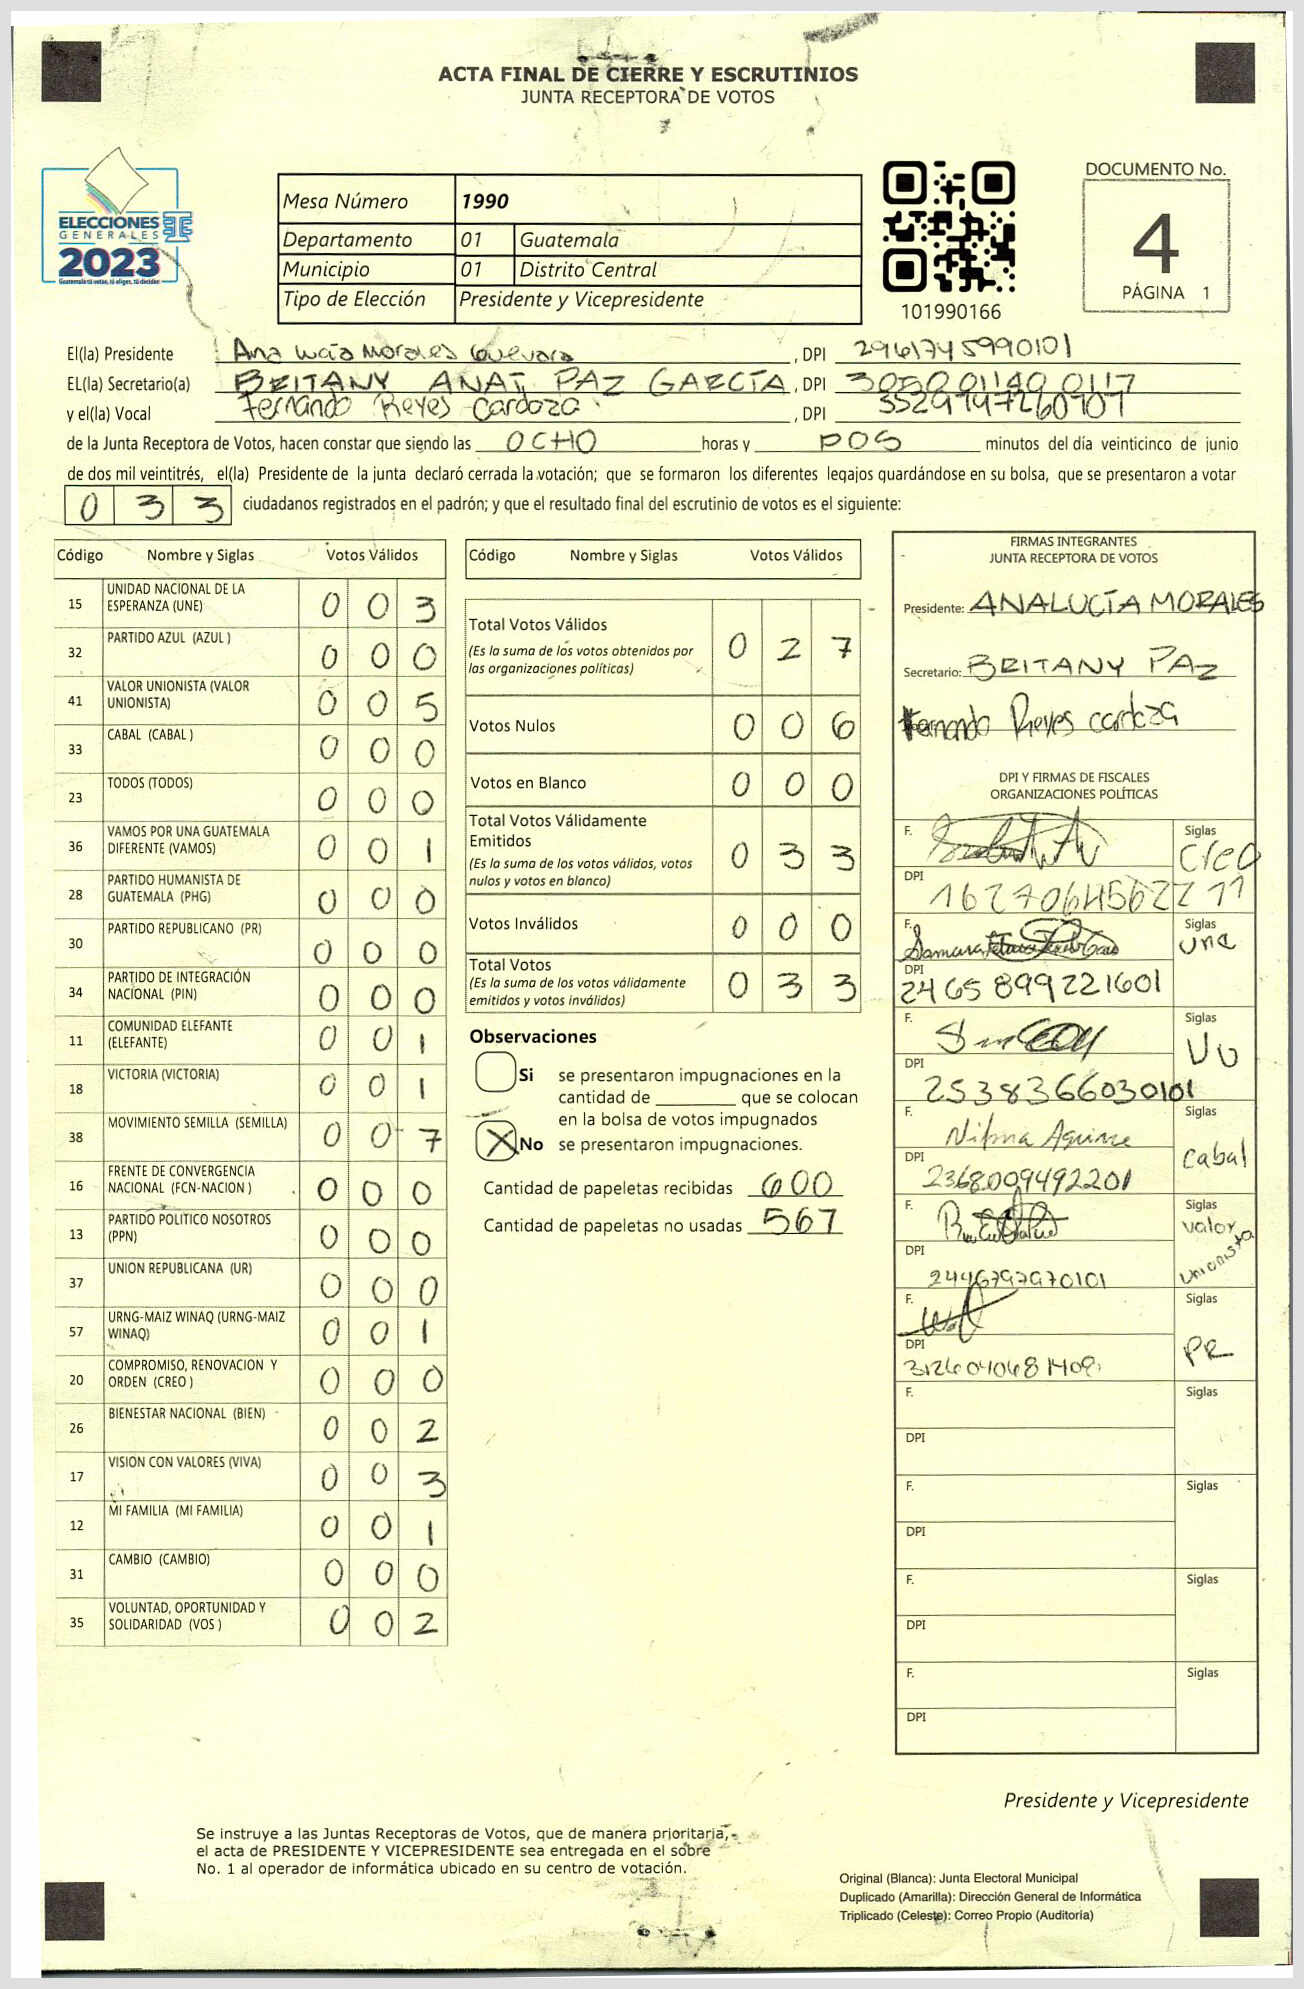 ACTA FINAL DE CIERRE Y ESCRUTINIOS
JUNTA RECEPTORA DE VOTOS
ELECCIONES
GENERALES
2023
Guatemala tú votas, tú eliges, tú decides
TSE
Mesa Número 1990
Departamento 01 Guatemala
Municipio 01 Distrito Central
Tipo de Elección Presidente y Vicepresidente
101990166
DOCUMENTO No.
4
PÁGINA 1
El(la) Presidente Ana Lucía Morales Guevara, DPI 2961745990101
EL(la) Secretario(a) BRITANY ANAI PAZ GARCÍA, DPI 3050 01140 0117
y el(la) Vocal Fernando Reyes Cardoza, DPI
de la Junta Receptora de Votos, hacen constar que siendo las OCHO horas y DOS minutos del día veinticinco de junio
de dos mil veintitrés, el(la) Presidente de la junta declaró cerrada la votación; que se formaron los diferentes legajos guardándose en su bolsa, que se presentaron a votar
0 3 3 ciudadanos registrados en el padrón; y que el resultado final del escrutinio de votos es el siguiente:
Código Nombre y Siglas Votos Válidos
15 UNIDAD NACIONAL DE LA ESPERANZA (UNE) 0 0 3
32 PARTIDO AZUL (AZUL ) 0 0 0
41 VALOR UNIONISTA (VALOR UNIONISTA) 0 0 5
33 CABAL (CABAL ) 0 0 0
23 TODOS (TODOS) 0 0 0
36 VAMOS POR UNA GUATEMALA DIFERENTE (VAMOS) 0 0 1
28 PARTIDO HUMANISTA DE GUATEMALA (PHG) 0 0 0
30 PARTIDO REPUBLICANO (PR) 0 0 0
34 PARTIDO DE INTEGRACIÓN NACIONAL (PIN) 0 0 0
11 COMUNIDAD ELEFANTE (ELEFANTE) 0 0 1
18 VICTORIA (VICTORIA) 0 0 1
38 MOVIMIENTO SEMILLA (SEMILLA) 0 0 7
16 FRENTE DE CONVERGENCIA NACIONAL (FCN-NACION ) 0 0 0
13 PARTIDO POLITICO NOSOTROS (PPN) 0 0 0
37 UNION REPUBLICANA (UR) 0 0 0
57 URNG-MAIZ WINAQ (URNG-MAIZ WINAQ) 0 0 1
20 COMPROMISO, RENOVACION Y ORDEN (CREO ) 0 0 0
26 BIENESTAR NACIONAL (BIEN) 0 0 2
17 VISION CON VALORES (VIVA) 0 0 3
12 MI FAMILIA (MI FAMILIA) 0 0 1
31 CAMBIO (CAMBIO) 0 0 0
35 VOLUNTAD, OPORTUNIDAD Y SOLIDARIDAD (VOS ) 0 0 2
Código Nombre y Siglas Votos Válidos
Total Votos Válidos 0 2 7
(Es la suma de los votos obtenidos por
las organizaciones políticas)
Votos Nulos 0 0 6
Votos en Blanco 0 0 0
Total Votos Válidamente
Emitidos 0 3 3
(Es la suma de los votos válidos, votos
nulos y votos en blanco)
Votos Inválidos 0 0 0
Total Votos 0 3 3
(Es la suma de los votos válidamente
emitidos y votos inválidos)
Observaciones
Si se presentaron impugnaciones en la
cantidad de ________ que se colocan
en la bolsa de votos impugnados
X No se presentaron impugnaciones.
Cantidad de papeletas recibidas 600
Cantidad de papeletas no usadas 567
FIRMAS INTEGRANTES
JUNTA RECEPTORA DE VOTOS
Presidente: ANALUCÍA MORALES
Secretario: BRITANY PAZ
Fernando Reyes Cardoza
DPI Y FIRMAS DE FISCALES
ORGANIZACIONES POLÍTICAS
F. Siglas Creo
DPI
F. Samara Siglas Une
DPI 2465 899221601
F. Siglas VU
DPI 2538366030101
F. Siglas Cabal
DPI 2368009492201
F. Siglas Valor Unionista
DPI 2446797970101
F. Siglas PR
DPI
F. Siglas
DPI
F. Siglas
DPI
F. Siglas
DPI
F. Siglas
DPI
Presidente y Vicepresidente
Se instruye a las Juntas Receptoras de Votos, que de manera prioritaria,
el acta de PRESIDENTE Y VICEPRESIDENTE sea entregada en el sobre
No. 1 al operador de informática ubicado en su centro de votación.
Original (Blanca): Junta Electoral Municipal
Duplicado (Amarilla): Dirección General de Informática
Triplicado (Celeste): Correo Propio (Auditoría)